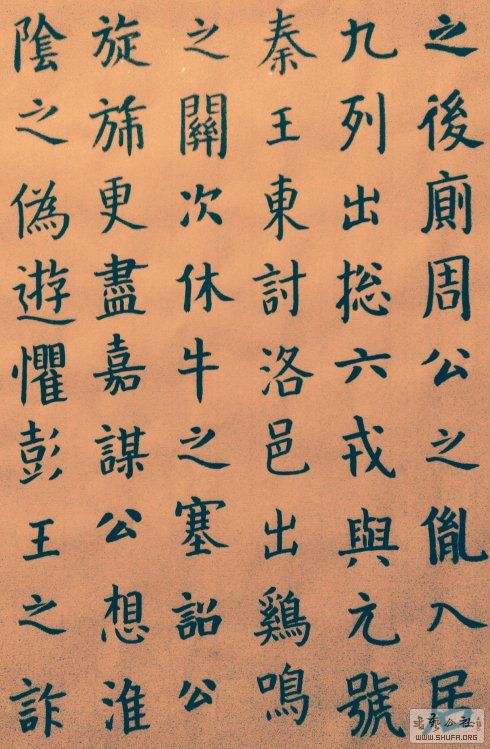 之後廁周公之胤入居
九列出捴六戎與元號
秦王東討洛邑出鷄鳴
之關次休牛之塞詔公
旋旆更盡嘉謀公想淮
陰之偽遊懼彭王之詐
WWW.SHUFA.ORG